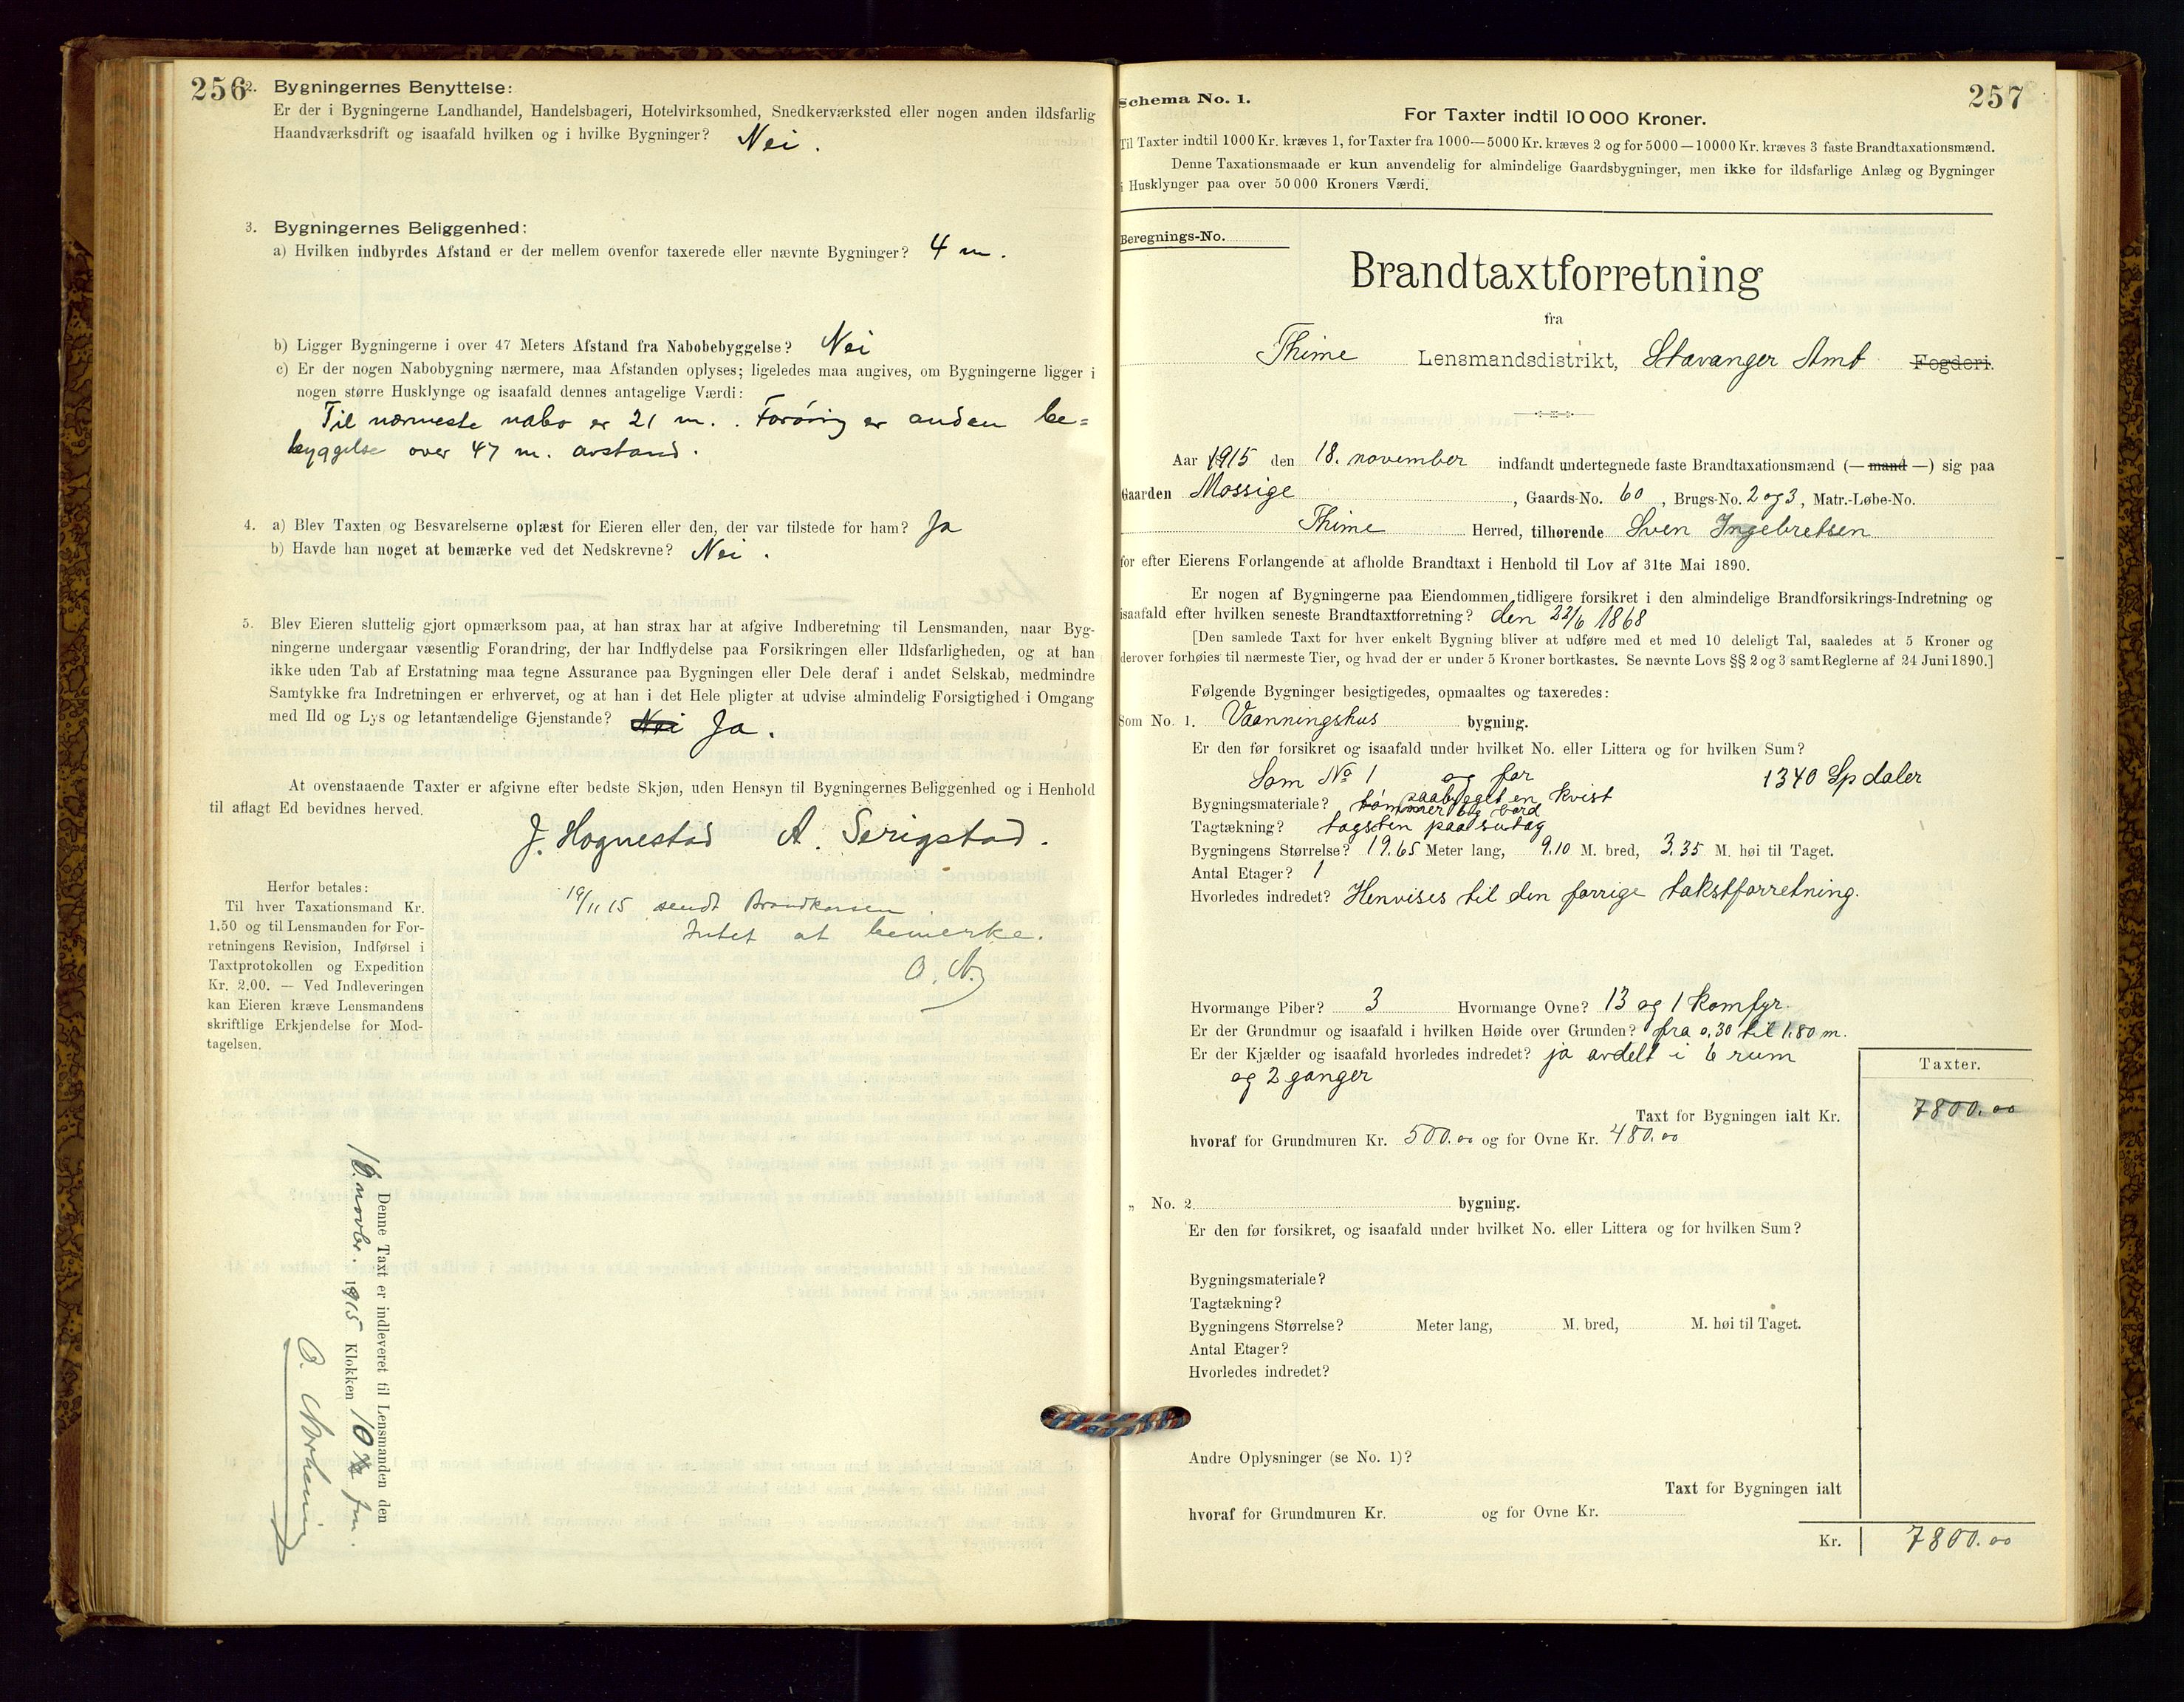 256
2. Bygningernes Benyttelse:
Er der i Bygningerne Landhandel, Handelsbageri, Hotelvirksomhed, Snedkerværksted eller nogen anden ildsfarlig
Haandværksdrift og isaafald hvilken og i hvilke Bygninger? Nei.
3. Bygningernes Beliggenhed:
a) Hvilken indbyrdes Afstand er der mellem ovenfor taxerede eller nævnte Bygninger? 4 m.
b) Ligger Bygningerne i over 47 Meters Afstand fra Nabobebyggelse? Nei
c) Er der nogen Nabobygning nærmere, maa Afstanden oplyses; ligeledes maa angives, om Bygningerne ligger i
nogen større Husklynge og isaafald dennes antagelige Værdi:
Til nærmeste nabo er 21 m. Forøvrig er anden be=
byggelse over 47 m. avstand.
4. a) Blev Taxten og Besvarelserne oplæst for Eieren eller den, der var tilstede for ham? Ja
b) Havde han noget at bemærke ved det Nedskrevne? Nei.
5. Blev Eieren sluttelig gjort opmærksom paa, at han strax har at afgive Indberetning til Lensmanden, naar Byg-
ningerne undergaar væsentlig Forandring, der har Indflydelse paa Forsikringen eller Ildsfarligheden, og at han
ikke uden Tab af Erstatning maa tegne Assurance paa Bygningen eller Dele deraf i andet Selskab, medmindre
Samtykke fra Indretningen er erhvervet, og at han i det Hele pligter at udvise almindelig Forsigtighed i Omgang
med Ild og Lys og letantændelige Gjenstande? Nei Ja.
At ovenstaaende Taxter er afgivne efter bedste Skjøn, uden Hensyn til Bygningernes Beliggenhed og i Henhold
til aflagt Ed bevidnes herved.
J. Hognestad A. Serigstad.
Herfor betales:
Til hver Taxationsmand Kr.
1.50 og til Lensmanden for For-
retningens Revision, Indførsel i
Taxtprotokollen og Expedition
Kr. 2.00. — Ved Indleveringen
kan Eieren kræve Lensmandens
skriftlige Erkjendelse for Mod-
tagelsen.
19/11 15 sendt Brandkassen
Intet at bemerke.
Denne Taxt er indleveret til Lensmanden den
18. novbr. 1915 Klokken 10 fm.
257
Schema No. 1.
For Taxter indtil 10 000 Kroner.
Til Taxter indtil 1000 Kr. kræves 1, for Taxter fra 1000—5000 Kr. kræves 2 og for 5000—10000 Kr. kræves 3 faste Brandtaxationsmænd.
Denne Taxationsmaade er kun anvendelig for almindelige Gaardsbygninger, men ikke for ildsfarlige Anlæg og Bygninger
i Husklynger paa over 50 000 Kroners Værdi.
Beregnings-No.
Brandtaxtforretning
fra
Thime Lensmandsdistrikt, Stavanger Amt Fogderi.
Aar 1915 den 18. november indfandt undertegnede faste Brandtaxationsmænd (— mand —) sig paa
Gaarden Mossige, Gaards-No. 60, Brugs-No. 2 og 3, Matr.-Løbe-No.
Thime Herred, tilhørende Sven Ingebretsen
for efter Eierens Forlangende at afholde Brandtaxt i Henhold til Lov af 31te Mai 1890.
Er nogen af Bygningerne paa Eiendommen tidligere forsikret i den almindelige Brandforsikrings-Indretning og
isaafald efter hvilken seneste Brandtaxtforretning? den 22/6 1868
[Den samlede Taxt for hver enkelt Bygning bliver at udføre med et med 10 deleligt Tal, saaledes at 5 Kroner og
derover forhøies til nærmeste Tier, og hvad der er under 5 Kroner bortkastes. Se nævnte Lovs §§ 2 og 3 samt Reglerne af 24 Juni 1890.]
Følgende Bygninger besigtigedes, opmaaltes og taxeredes:
Som No. 1. Vaanningshus bygning.
Er den før forsikret og isaafald under hvilket No. eller Littera og for hvilken Sum?
Som No 1 og for 1340 Spdaler
paabygget en kvist
Bygningsmateriale? tømmer og bord
Tagtækning? tagsten paa sutag
Bygningens Størrelse? 19.65 Meter lang, 9.10 M. bred, 3.35 M. høi til Taget.
Antal Etager? 1
Hvorledes indredet? Henvises til den forrige takstforretning.
Hvormange Piber? 3 Hvormange Ovne? 13 og 1 komfyr.
Er der Grundmur og isaafald i hvilken Høide over Grunden? fra 0.30 til 1.80 m.
Er der Kjælder og isaafald hvorledes indredet? ja avdelt i 6 rum
og 2 ganger
Taxter.
Taxt for Bygningen ialt Kr. 7800.00
hvoraf for Grundmuren Kr. 500.00 og for Ovne Kr. 480.00
„ No. 2 bygning.
Er den før forsikret, og isaafald under hvilket No. eller Littera og for hvilken Sum?
Bygningsmateriale?
Tagtækning?
Bygningens Størrelse? Meter lang, M. bred, M. høi til Taget.
Antal Etager?
Hvorledes indredet?
Andre Oplysninger (se No. 1)?
Taxt for Bygningen ialt
hvoraf for Grundmuren Kr. og for Ovne Kr.
Kr. 7800.00